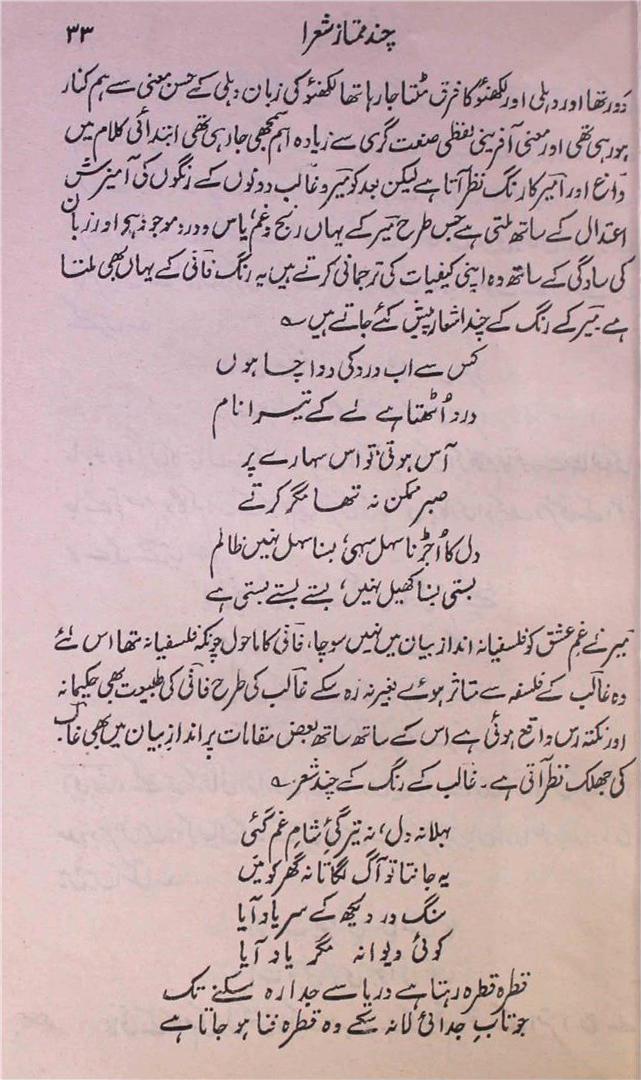 چند ممتاز شعرا ۳۳
دَور تھا اور دہلی اور لکھنؤ کا فرق مٹتا جا رہا تھا لکھنؤ کی زبان دہلی کے حسن معنی سے ہم کنار
ہو رہی تھی اور معنی آفرینی لفظی صنعت گری سے زیادہ اہم سمجھی جا رہی تھی ابتدائی کلام میں
داغ اور امیر کا رنگ نظر آتا ہے لیکن بعد کو میر و غالب دونوں کے رنگوں کی آمیزش
اعتدال کے ساتھ ملتی ہے جس طرح میر کے یہاں رنج و غم، یاس و درد موجود ہو اور زبان
کی سادگی کے ساتھ وہ اپنی کیفیات کی ترجمانی کرتے ہیں یہ رنگ فانی کے یہاں بھی ملتا
ہے میر کے رنگ کے چند اشعار پیش کئے جاتے ہیں ؎
کس سے اب درد کی دوا چاہوں
درد اُٹھتا ہے لے کے تیرا نام
آس ہوتی تو اس سہارے پر
صبر ممکن نہ تھا مگر کرتے
دل کا اُجڑنا سہل سہی، بسنا سہل نہیں ظالم
بستی بسنا کھیل نہیں، بستے بستے بستی ہے
میر نے غم عشق کو فلسفیانہ انداز بیان میں نہیں سوچا، فانی کا ماحول چونکہ فلسفیانہ تھا اس لئے
وہ غالب کے فلسفہ سے متاثر ہوئے بغیر نہ رہ سکے غالب کی طرح فانی کی طبیعت بھی حکیمانہ
اور نکتہ رس واقع ہوئی ہے اس کے ساتھ ساتھ بعض مقامات پر انداز بیان میں بھی غالب
کی جھلک نظر آتی ہے۔ غالب کے رنگ کے چند شعر ؎
بہلا نہ دل، نہ تیرگیِ شامِ غم گئی
یہ جانتا تو آگ لگاتا نہ گھر کو میں
سنگ در دیکھ کے سر یاد آیا
کوئی دیوانہ مگر یاد آیا
قطرہ قطرہ رہتا ہے دریا سے جدا رہ سکنے تک
جو تابِ جدائی لا نہ سکے وہ قطرہ فنا ہو جاتا ہے